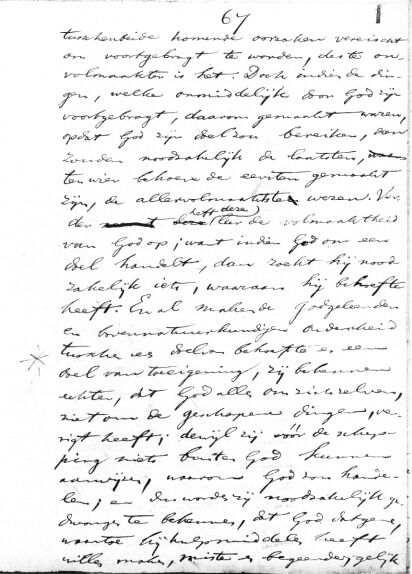 67
tusschenbeide komende oorzaken vereischt
om voortgebragt te worden, des te on
volmaakter is het. Doch indien de din-
gen, welke onmiddelijk door God zijn
voortgebragt, daarom gemaakt waren,
opdat God zijn doel zou bereiken, dan
zouden noodzakelijk de laatsten,
ter wier behoeve de eersten gemaakt
zijn, de allervolmaaktste wezen. Ver
der heft deze leer de volmaaktheid
van God op; want indien God om een
doel handelt, dan zoekt hij nood
zakelijk iets, waaraan hij behoefte
heeft. En al maken de godgeleerden
en bovennatuurkundigen onderscheid
tusschen een doel van behoefte en een
doel van toeëigening, zij bekennen
echter, dat God alles om zich zelven,
niet om de geschapen dingen, ver-
rigt heeft; dewijl zij vóór de schep-
ping niets buiten God kunnen
aanwijzen, waarom God zou hande-
len; en dus worden zij noodzakelijk ge-
dwongen te bekennen, dat God datgene,
waartoe hij hulpmiddelen heeft
willen maken, miste en begeerde; gelijk